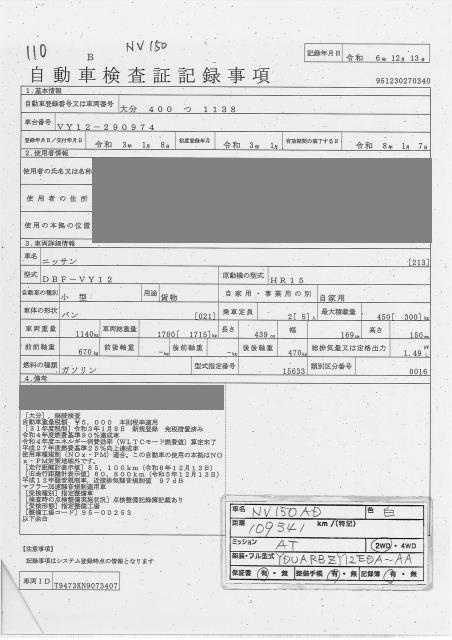 110
B
NV150
記録年月日 令和 6年 12月 13日
自動車検査証記録事項
951230270340
1.基本情報
自動車登録番号又は車両番号 大分 400 つ 1138
車台番号 VY12-290974
登録年月日/交付年月日 令和 3年 1月 8日 初度登録年月 令和 3年 1月 有効期間の満了する日 令和 8年 1月 7日
2.使用者情報
使用者の氏名又は名称
使用者の住所
使用の本拠の位置
3.車両詳細情報
車名 ニッサン [213]
型式 DBF-VY12 原動機の型式 HR15
自動車の種別 小型 用途 貨物 自家用・事業用の別 自家用
車体の形状 バン [021] 乗車定員 2[ 5]人 最大積載量 450[ 300]kg
車両重量 1140kg 車両総重量 1700[ 1715]kg 長さ 439cm 幅 169cm 高さ 150cm
前前軸重 670kg 前後軸重 -kg 後前軸重 -kg 後後軸重 470kg 総排気量又は定格出力 1.49
燃料の種類 ガソリン 型式指定番号 15633 類別区分番号 0016
4.備考
[大分],継続検査
自動車重量税額 ¥5,000 本則税率適用
[31年度税制]令和3年1月8日 新規登録 免税措置済み
令和4年度燃費基準90%達成車
令和4年度エネルギー消費効率(WLTCモード燃費値)算定未了
平成27年度燃費基準25%向上達成車
使用車種規制(NOx・PM)適合,この自動車の使用の本拠はNO
x・PM対策地域外です。
[走行距離計表示値]85,100km(令和6年12月13日)
[旧走行距離計表示値]60,800km(令和5年12月13日)
平成12年騒音規制車,近接排気騒音規制値 97dB
マフラー加速騒音規制適用車
[受検種別]指定整備車
[検査時の点検整備実施状況]点検整備記録簿記載あり
[受検形態]指定整備工場
[整備工場コード]95-00253
以下余白
車名 NV150AD 色 白
距離 109341 km/(特記)
ミッション AT 2WD・4WD
架装・フル型式 YDUARBZY12EDA-AA
保証書 有・無 整備手帳 有・無 記録簿 有・無
【注意事項】
記録事項はシステム登録時点の情報となります
車両ID T9473KN9073407